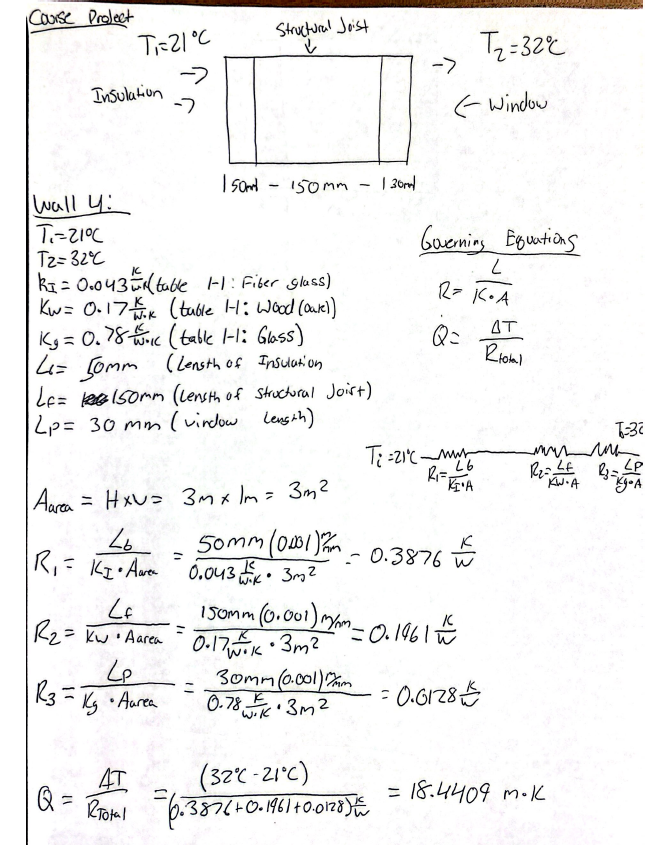 Course Project
Structural Joist
T₁=21°C
T₂=32°C
Insulation
Window
| 50mm - 150mm - | 30ml
Wall 4:
T₁=21°C
T2=32°C
Governing Equations
k_I = 0.043 K/W·K (table 1-1: Fiber glass)
R = L / K·A
Kw = 0.17 K/W·K (table 1-1: Wood (oak))
Kg = 0.78 K/W·K (table 1-1: Glass)
Q̇ = ΔT / Rtotal
L = 50mm (Length of Insulation
Lf = 150mm (Length of structural Joist)
Lp = 30 mm (window Length)
Ti =21°C R₁ = Lb / K_I·A R₂ = Lf / Kw·A R₃ = Lp / Kg·A T₂=32
Aarea = H×W = 3m x 1m = 3m²
R₁ = Lb / K_I · Aarea = 50mm (0.001) m/mm / 0.043 K/W·K · 3m² = 0.3876 K/W
R₂ = Lf / Kw · Aarea = 150mm (0.001) m/mm / 0.17 K/W·K · 3m² = 0.1961 K/W
R₃ = Lp / Kg · Aarea = 30mm (0.001) m/mm / 0.78 K/W·K · 3m² = 0.0128 K/W
Q = ΔT / RTotal = (32°C - 21°C) / (0.3876+0.1961+0.0128) K/W = 18.4409 m·K